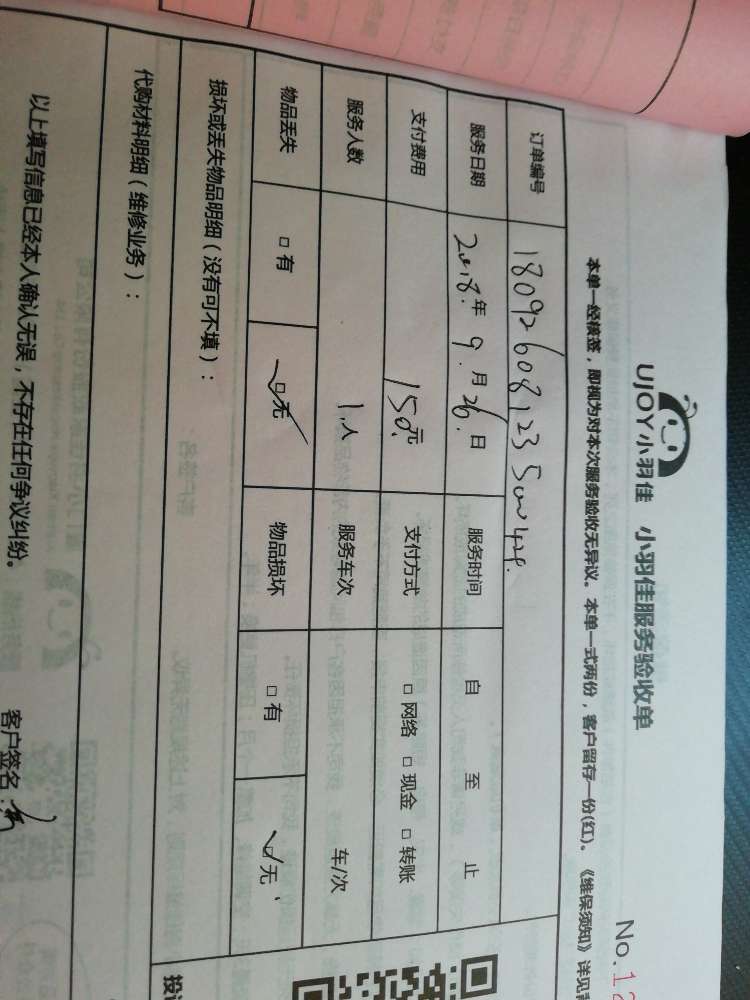 UJOY小羽佳 小羽佳服务验收单
No.12
本单一经核签，即视为对本次服务验收无异议。本单一式两份，客户留存一份(红)。《维保须知》详见
订单编号 180926081235000424.
服务日期 2018.年 9.月 26.日 服务时间 自 至 止
支付费用 150元. 支付方式 □ 网络 □ 现金 □ 转账
服务人数 1.人 服务车次 车/次
物品丢失 □ 有 ☑ 无 物品损坏 □ 有 ☑ 无
损坏或丢失物品明细（没有可不填）：
代购材料明细（维修业务）：
以上填写信息已经本人确认无误，不存在任何争议纠纷。 客户签名：